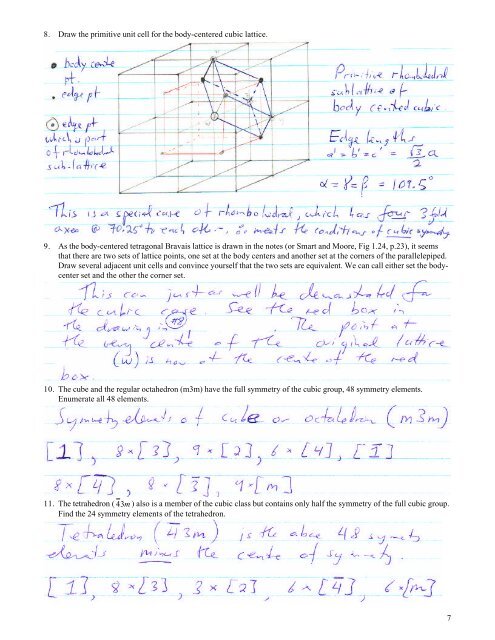 8. Draw the primitive unit cell for the body-centered cubic lattice.
• body cente
pt.
• edge pt
⊙ edge pt
which is part
of rhombohedral
sub-lattice
Primitive rhombohedral
sublattice of
body centred cubic.
Edge lengths
a' = b' = c' = √3/2 a
α = γ = β = 109.5°
This is a special case of rhombohedral, which has four 3 fold
axes @ 70.25° to each other, ∴ meets the conditions of cubic symmetry
9. As the body-centered tetragonal Bravais lattice is drawn in the notes (or Smart and Moore, Fig 1.24, p.23), it seems
that there are two sets of lattice points, one set at the body centers and another set at the corners of the parallelepiped.
Draw several adjacent unit cells and convince yourself that the two sets are equivalent. We can call either set the body-
center set and the other the corner set.
This can just as well be demonstrated for
the cubic case. See the red box in
the drawing in #8. The point at
the very centre of the original lattice
(w) is now at the cente of the red
box.
10. The cube and the regular octahedron (m3m) have the full symmetry of the cubic group, 48 symmetry elements.
Enumerate all 48 elements.
Symmetry elements of cube or octahedron (m3m)
[1], 8×[3], 9×[2], 6×[4], [1̅]
8×[4̅], 8×[3̅], 9×[m]
11. The tetrahedron (4̅3m) also is a member of the cubic class but contains only half the symmetry of the full cubic group.
Find the 24 symmetry elements of the tetrahedron.
Tetrahedron (4̅3m) is the above 48 symmetry
elements minus the cente of symmetry.
[1], 8×[3], 3×[2], 6×[4̅], 6×[m]
7